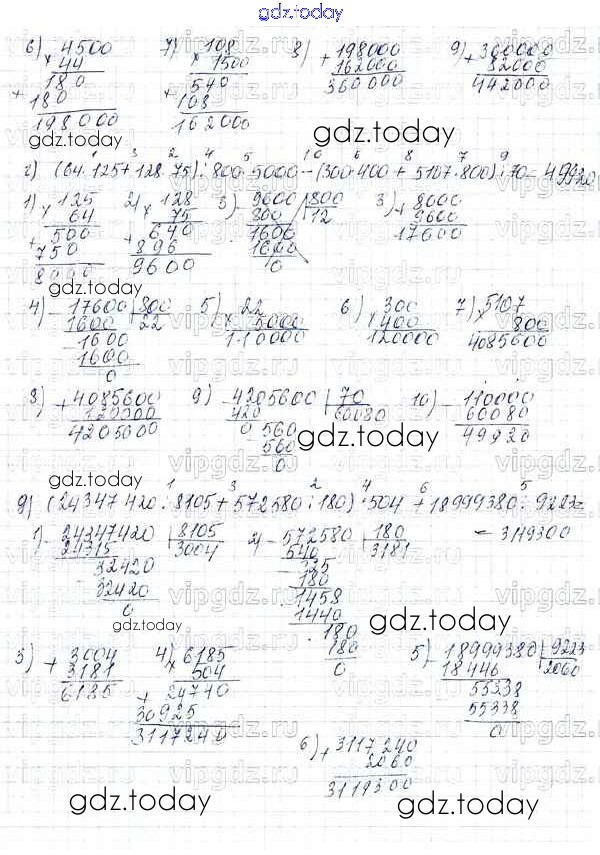 gdz.today
6) × 4500 7) × 108 8) + 198000 9) + 360000
44 1500 162000 82000
180 540 360000 442000
+ 180 + 108
198000 162000
gdz.today
г) (64·125+128·75):800·5000-(300·400+5107·800):70=49920
1) × 125 2) × 128 3) - 9600 | 800 3) + 8000
64 75 800 12 9600
+ 500 + 640 1600 17600
750 896 1600
8000 9600 0
4) - 17600 | 800 5) × 22 6) × 300 7) × 5107
1600 22 5000 400 800
- 1600 110000 120000 4085600
1600
0
8) + 4085600 9) - 4205600 | 70 10) - 110000
120000 420 60080 60080
4205600 560 49920
560
0
gdz.today
gdz.today
д) (24347420:8105+572580:180)·504+18999380:9223=
= 3119300
1) - 24347420 | 8105 2) - 572580 | 180
24315 3004 540 3181
32420 325
32420 180
0 1458
1440
180
180
0
gdz.today
gdz.today
3) + 3004 4) × 6185 5) - 18999380 | 9223
3181 504 18446 2060
6185 + 24740 55338
30925 55338
3117240 0
6) + 3117240
2060
3119300
gdz.today
gdz.today
vipgdz.ru